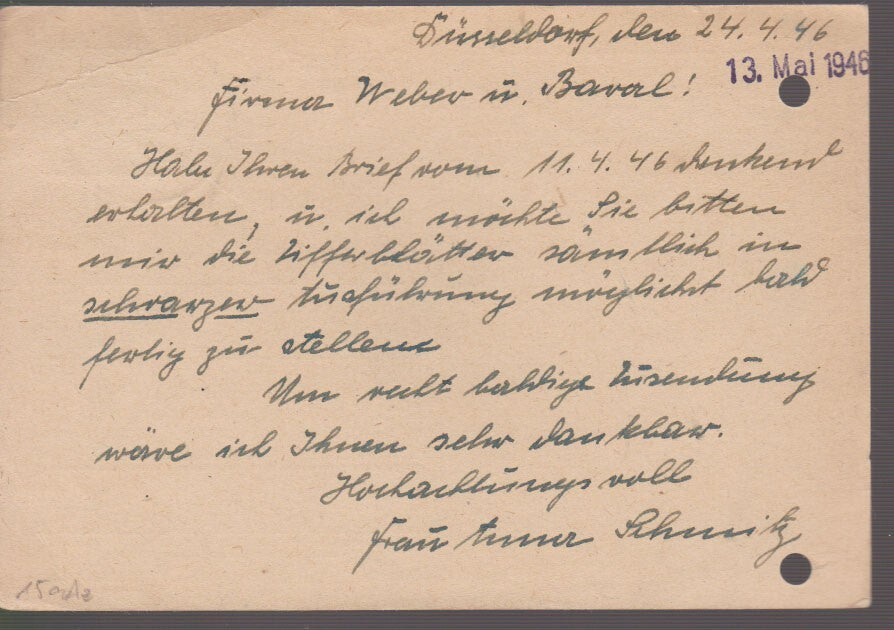 Düsseldorf, den 24.4.46
13. Mai 1946
Firma Weber u. Baral!
Habe Ihren Brief vom 11.4.46 dankend
erhalten, u. ich möchte Sie bitten
mir die Zifferblätter sämtlich in
schwarzer Ausführung möglichst bald
fertig zu stellen
Um recht baldige Zusendung
wäre ich Ihnen sehr dankbar.
Hochachtungsvoll
Frau Anna Schmitz